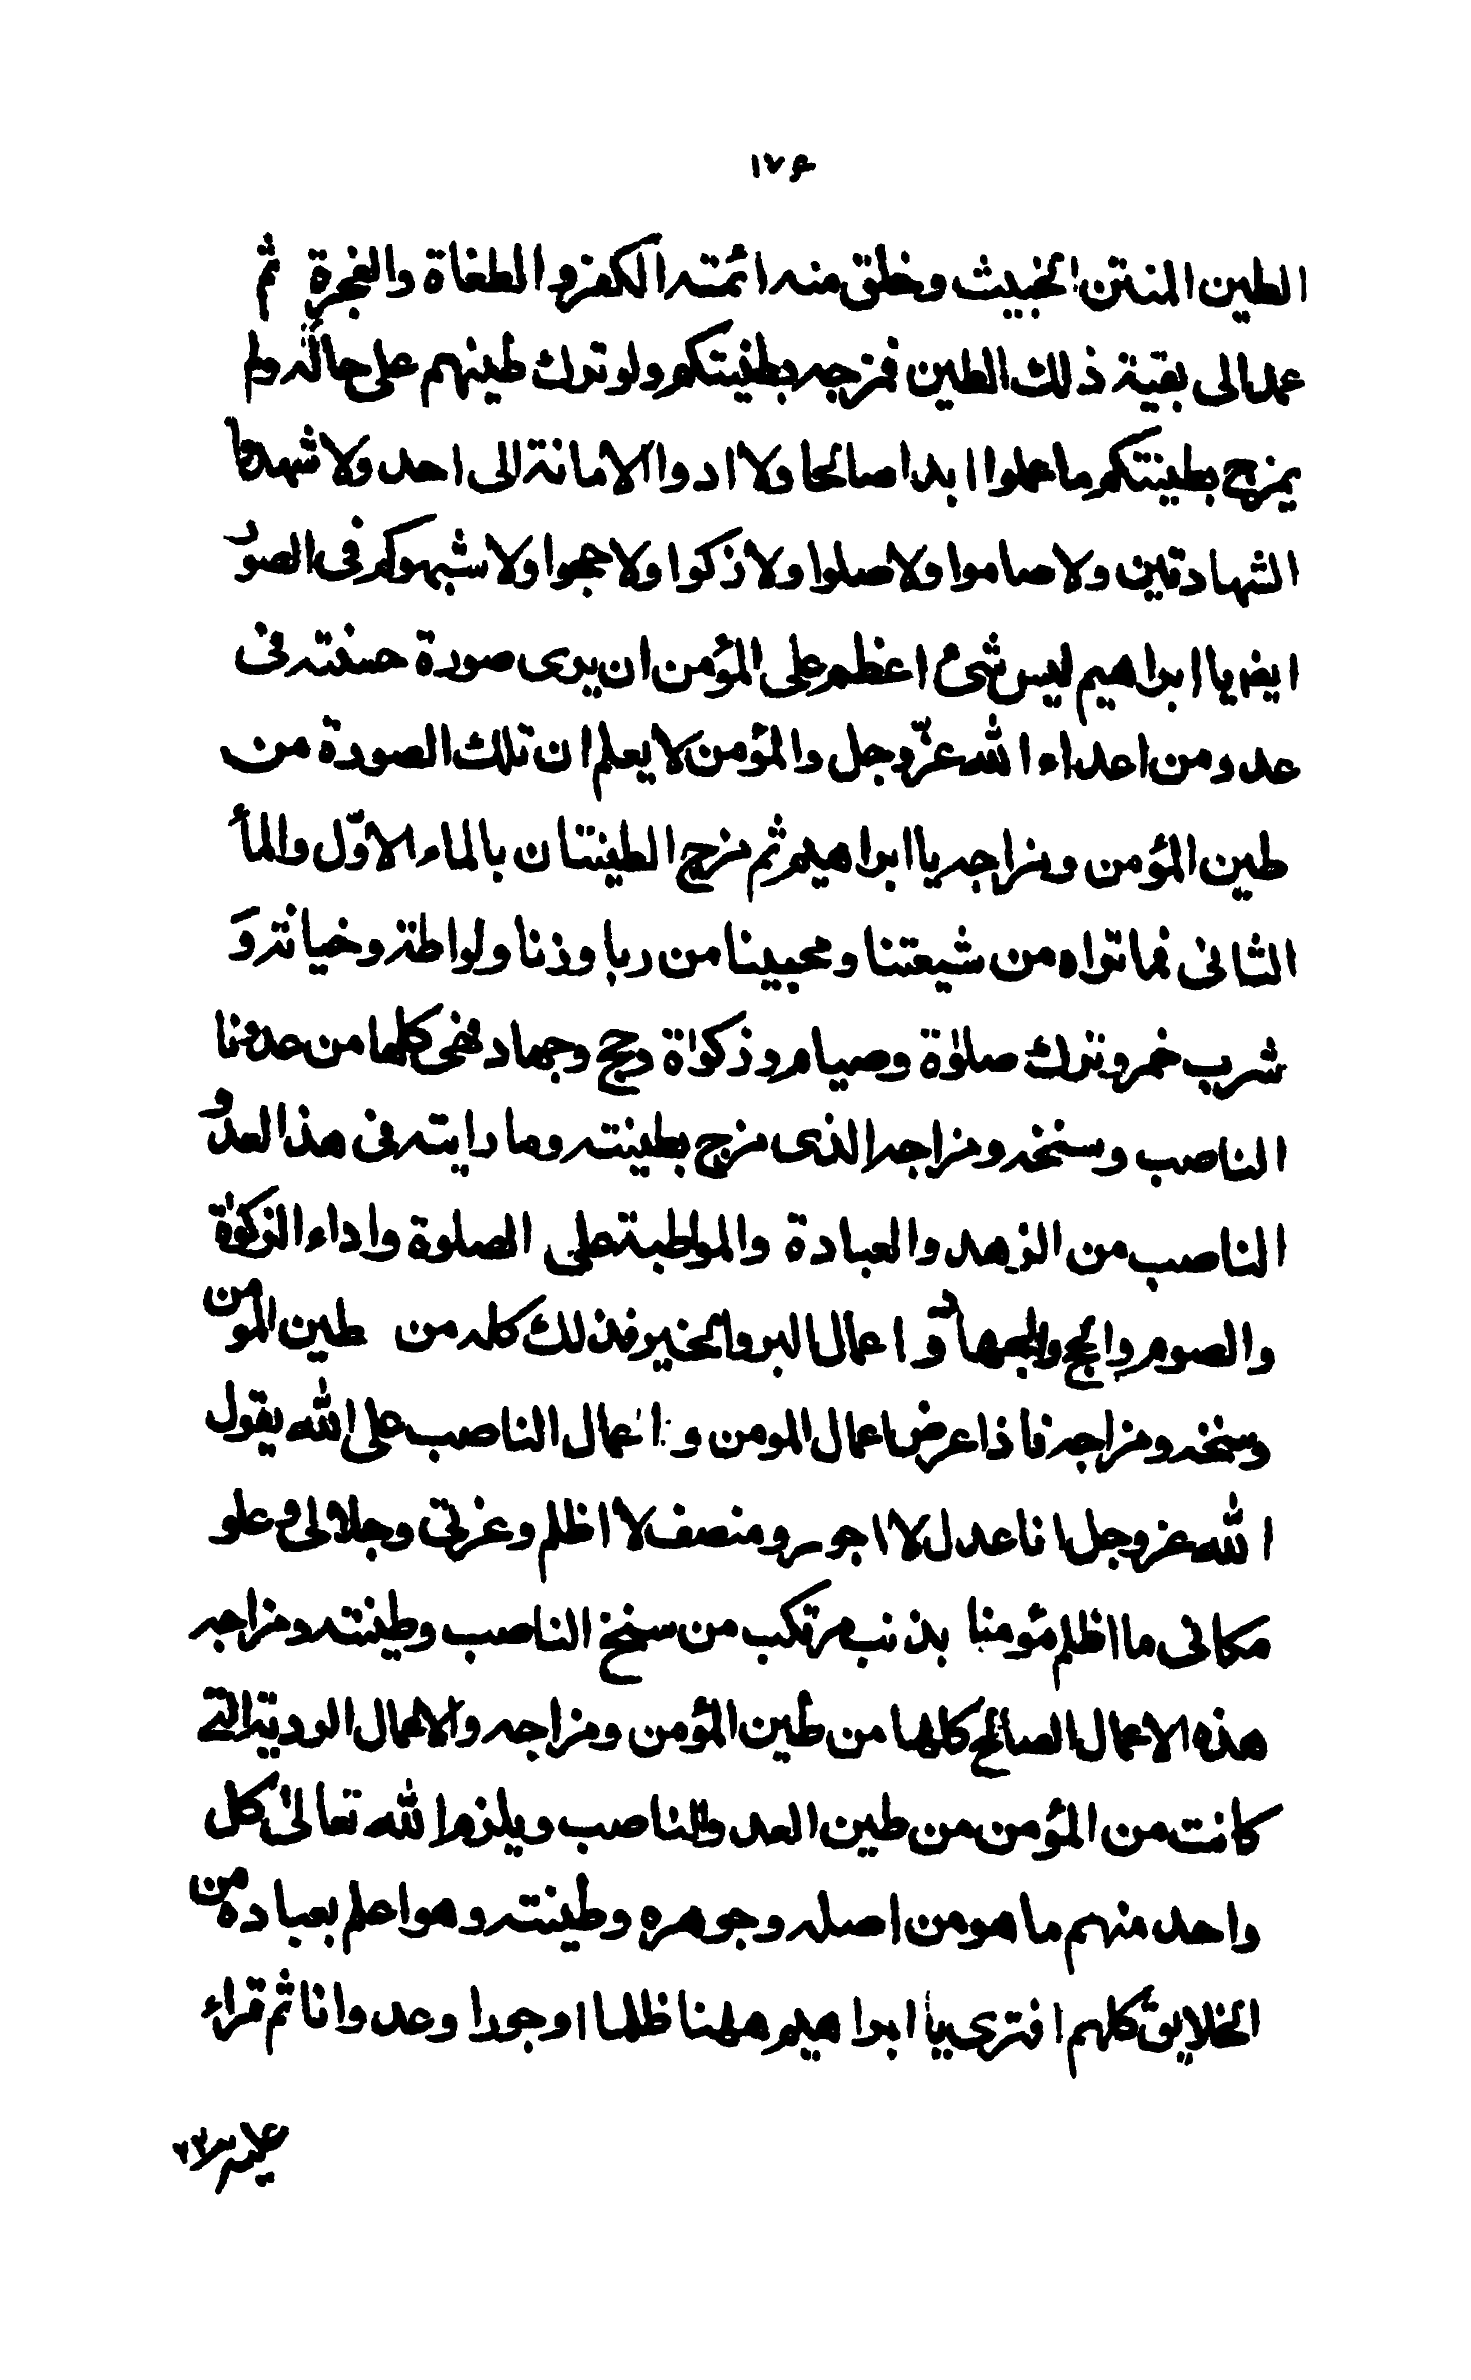 ۱۷۶
الطين المنتن الخبيث وخلق منه ائمته الكفر و الطغاة والفجرة ثم
عمد الى بقية ذلك الطين فمزجه بطينتكم ولو ترك طينهم على حاله ولم
يمزج بطينتكم ما عملوا ابدا صالحا ولا ادوا الامانة الى احد ولا شهدوا
الشهادتين ولا صاموا ولا صلوا ولا زكوا ولا حجوا ولا شبهوكم فى الصور
ايضا يا ابراهيم ليس شئ اعظم على المؤمن ان يرى صورة حسنته فى
عدو من اعداء الله عزّ وجل والمؤمن لا يعلم ان تلك الصورة من
طين المؤمن ومزاجه يا ابراهيم ثم مزج الطينتان بالماء الاوّل والمأ
الثانى فما تراه من شيعتنا ومحبينا من ربا وزنا ولواطة وخيانة وَ
شرب خمر وترك صلوٰة وصيام وزكوٰة وحج وجهاد فهى كلها من عدونا
الناصب وسنخه ومزاجه الذى مزج بطينته وما رايته فى هذا العدوّ
الناصب من الزهد والعبادة والمواظبة على الصلوة واداء الزكوٰة
والصوم والحج والجهاد و اعمال البر والخير فذلك كله من طين المومن
وسنخه ومزاجه فاذا عرض اعمال المومن و اعمال الناصب على الله يقول
الله عز وجل انا عدل لا اجور ومنصف لا اظلم وعزتى وجلالى وعلو
مكانى ما اظلم مؤمنا بذنب مرتكب من سنخ الناصب وطينته ومزاجه
هذه الاعمال الصالح كلها من طين المؤمن ومزاجه والاعمال الردية التى
كانت من المؤمن من طين العدو الناصب ويلزم الله تعالىٰ كل
واحد منهم ما هو من اصله وجوهره وطينته وهو اعلم بعباده من
الخلايق كلهم افترى يا ابراهيم ههنا ظلما او جورا وعدوانا ثم قراء
عليه السلام